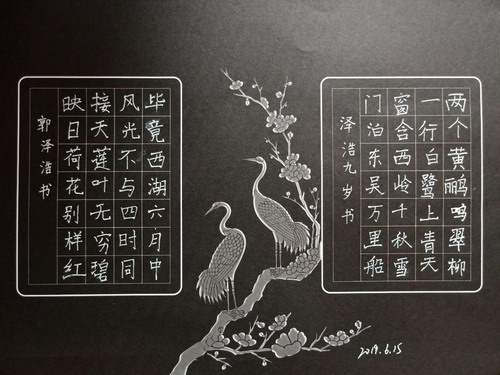 两个黄鹂鸣翠柳
一行白鹭上青天
窗含西岭千秋雪
门泊东吴万里船
泽浩九岁书
毕竟西湖六月中
风光不与四时同
接天莲叶无穷碧
映日荷花别样红
郭泽浩书
2019.6.15